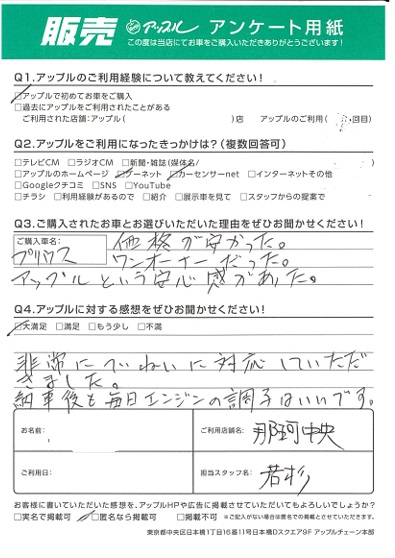 販売 アップル アンケート用紙
この度は当店にてお車をご購入いただきありがとうございます!
Q1.アップルのご利用経験について教えてください!
☑アップルで初めてお車をご購入
□過去にアップルをご利用されたことがある
ご利用された店舗:アップル( )店 アップルのご利用( 回目)
Q2.アップルをご利用になったきっかけは?(複数回答可)
□テレビCM □ラジオCM □新聞・雑誌(媒体名/ )
□アップルのホームページ ☑グーネット ☑カーセンサーnet □インターネットその他
□Googleクチコミ □SNS □YouTube
□チラシ □利用経験があるので □紹介 □展示車を見て □スタッフからの提案で
Q3.ご購入されたお車とお選びいただいた理由をぜひお聞かせください!
ご購入車名: 価格が安かった。
プリウス ワンオーナーだった。
アップルという安心感があった。
Q4.アップルに対する感想をぜひお聞かせください!
☑大満足 □満足 □もう少し □不満
非常にていねいに対応していただ
きました。
納車後も毎日エンジンの調子はいいです。
お名前: ご利用店舗名: 那珂中央
ご利用日: 担当スタッフ名: 若杉
お客様に書いていただいた感想を、アップルHPや広告に掲載させていただいてもよろしいでしょうか?
□実名で掲載可 ☑匿名なら掲載可 □掲載不可 ※ご記入がない場合は匿名での掲載とさせていただきます。
東京都中央区日本橋1丁目16番11号日本橋Dスクエア9F アップルチェーン本部